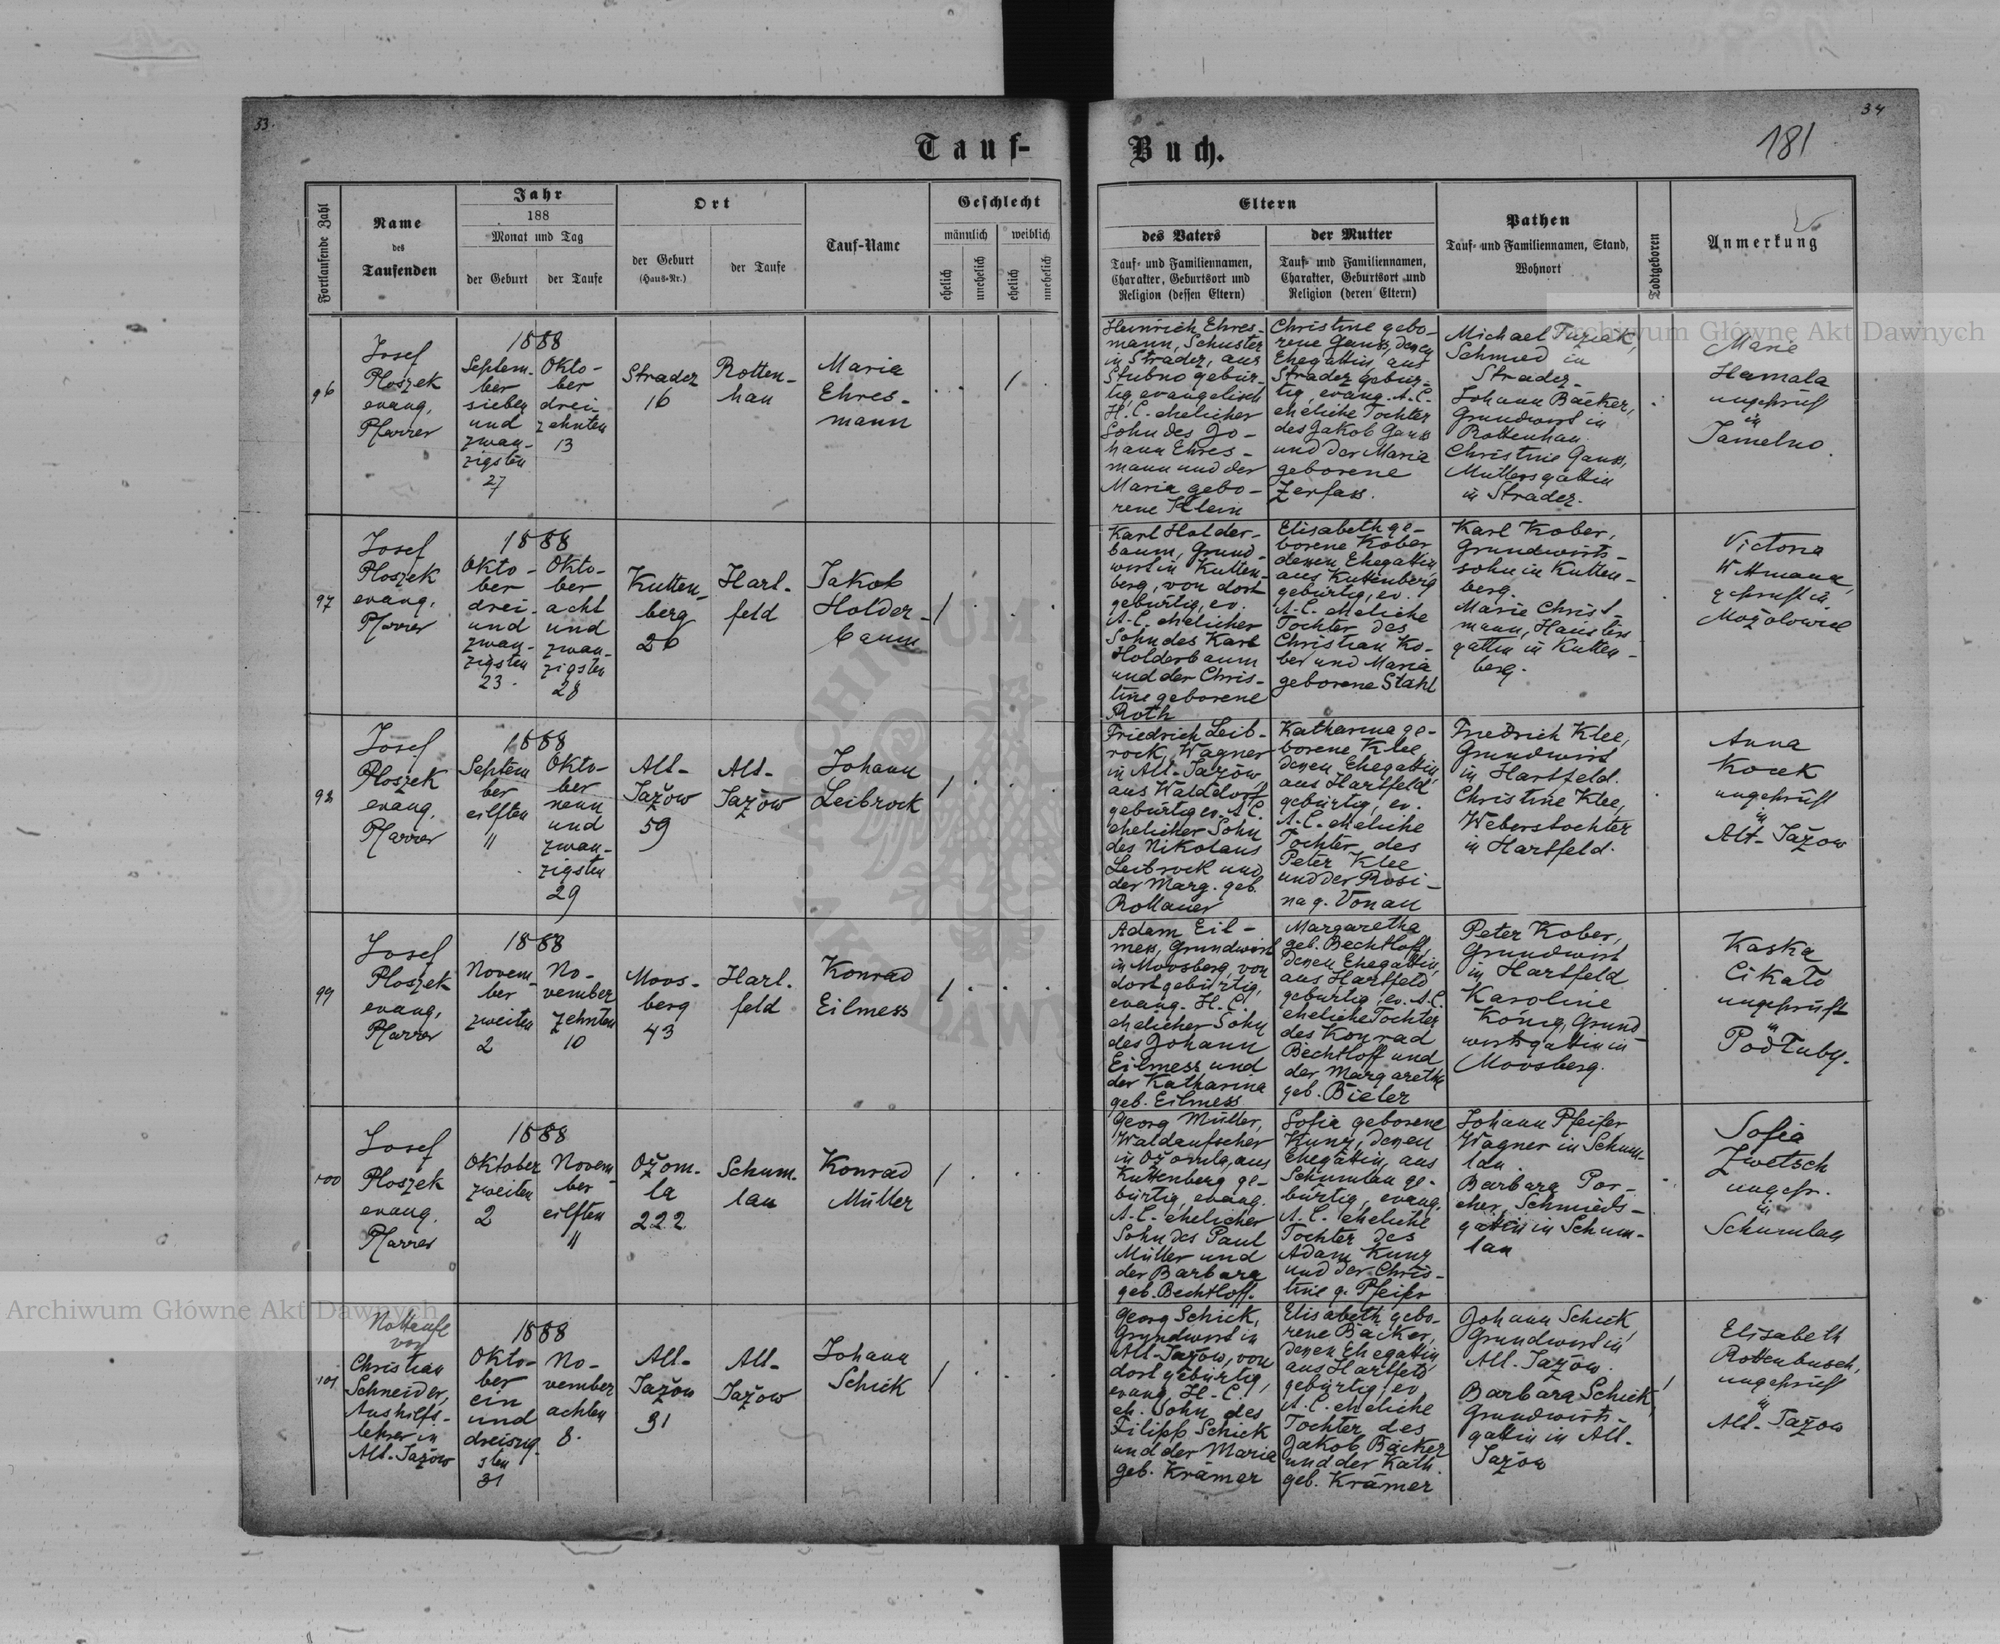 33.
34
181
Tauf-
Buch.
Fortlaufende Zahl
Name
des
Taufenden
Jahr
188
Monat und Tag
der Geburt
der Taufe
Ort
der Geburt
(Haus-Nr.)
der Taufe
Tauf-Name
Geschlecht
männlich
weiblich
ehelich
unehelich
ehelich
unehelich
Eltern
des Vaters
Tauf- und Familiennamen,
Charakter, Geburtsort und
Religion (dessen Eltern)
der Mutter
Tauf- und Familiennamen,
Charakter, Geburtsort und
Religion (deren Eltern)
Pathen
Tauf- und Familiennamen, Stand,
Wohnort
Todtgeboren
Anmerkung
96
Josef
Ploszek
evang.
Pfarrer
1888
Septem-
ber
sieben
und
zwan-
zigsten
27
Okto-
ber
drei-
zehnten
13
Stradez
16
Rotten-
han
Maria
Ehres-
mann
Heinrich Ehres-
mann, Schuster
in Stradez, aus
Stubno gebür-
tig, evangelisch
H. C. ehelicher
Sohn des Jo-
hann Ehres-
mann und der
Maria gebo-
rene Klein
Christine gebo-
rene Gauss, dessen
Ehegattin, aus
Stradez gebür-
tig, evang. A.C.
eheliche Tochter
des Jakob Gauss
und der Maria
geborene
Zerfass.
Michael
Schmied in
Stradez.
Johann Bäcker,
Grundwirt in
Rottenhan.
Christine Gauss,
Müllersgattin
in Stradez.
Marie
Hamala
ungeprüft
in
Jamelno.
97
Josef
Ploszek
evang.
Pfarrer
1888
Okto-
ber
drei-
und
zwan-
zigsten
23.
Okto-
ber
acht
und
zwan-
zigsten
28
Kutten-
berg
26
Hart-
feld
Jakob
Holder-
baum
Karl Holder-
baum, Grund-
wirt in Kutten-
berg, von dort
gebürtig, ev.
A.C. ehelicher
Sohn des Karl
Holderbaum
und der Chris-
tine geborene
Roth
Elisabeth ge-
borene Kober
dessen Ehegattin,
aus Kuttenberg
gebürtig, ev.
A.C. eheliche
Tochter des
Christian Ko-
ber und Maria
geborene Stahl
Karl Kober,
Grundwirts-
sohn in Kutten-
berg.
Marie Christ-
mann, Häuslers
gattin in Kutten-
berg.
Victoria
Wittmann,
geprüft in
98
Josef
Ploszek
evang.
Pfarrer
1888
Septem
ber
eilften
11
Okto-
ber
neun
und
zwan-
zigsten
29
Alt-
Jažow
59
Alt-
Jažow
Johann
Leibrock
Friedrich Leib-
rock, Wagner
in Alt-Jažow,
aus Walddorf
gebürtig ev. A.C.
ehelicher Sohn
des Nikolaus
Leibrock und
der Marg. geb.
Katharina ge-
borene Klee,
dessen Ehegattin,
aus Hartfeld
gebürtig, ev.
A.C. eheliche
Tochter des
Peter Klee
und der Rosi-
na g. Donau
Friedrich Klee,
Grundwirt
in Hartfeld.
Christine Klee,
Weberstochter
in Hartfeld.
Anna
Kocek
ungeprüft
in
Alt-Jažow
99
Josef
Ploszek
evang.
Pfarrer
1888
Novem-
ber
zweiten
2
No-
vember
zehnten
10
Moos-
berg
43
Hart-
feld
Konrad
Eilmess
Adam Eil-
mess, Grundwirt
in Moosberg, von
dort gebürtig,
evang. H.C.
ehelicher Sohn
des Johann
Eilmess und
der Katharina
geb. Eilmess
Margaretha
geb. Bechtloff,
dessen Ehegattin,
aus Hartfeld
gebürtig, ev. A.C.
eheliche Tochter
des Konrad
Bechtloff und
der Margaretha
geb. Bieler
Peter Kober,
Grundwirt
in Hartfeld
Karoline
König, Grund-
wirtsgattin in
Moosberg.
Kaska
Cikało
ungeprüft
in
Podłuby.
100
Josef
Ploszek
evang.
Pfarrer
1888
Oktober
zweiten
2
Novem-
ber
eilften
11
Ožom-
la
222
Schum-
lau
Konrad
Müller
Georg Müller,
Waldaufseher
in Ožomla, aus
Kuttenberg ge-
bürtig, evang.
A.C. ehelicher
Sohn des Paul
Müller und
der Barbara
geb. Bechtloff.
Sofia geborene
Kunz, dessen
Ehegattin, aus
Schumlau ge-
bürtig, evang.
A.C. eheliche
Tochter des
Adam Kunz
und der Chris-
tine g. Pfeifer
Johann Pfeifer
Wagner in Schum-
lau
Barbara Por-
cher, Schmieds-
gattin in Schum-
lau
Sofia
Zwetsch
ungepr.
in
Schumlau
101
Nottaufe
von
Christian
Schneider,
Aushilfs-
lehrer in
Alt-Jažow
1888
Okto-
ber
ein
und
dreiszig-
sten
31
No-
vember
achten
8.
Alt-
Jažow
31
Alt-
Jažow
Johann
Schick
Georg Schick,
Grundwirt in
Alt-Jažow, von
dort gebürtig,
evang. H.C.
eh. Sohn des
Filipp Schick
und der Maria
geb. Krämer
Elisabeth gebo-
rene Bäcker,
dessen Ehegattin,
aus Hartfeld
gebürtig, ev.
A.C. eheliche
Tochter des
Jakob Bäcker
und der Kath.
geb. Krämer
Johann Schick,
Grundwirt in
Alt-Jažow.
Barbara Schick,
Grundwirts-
gattin in Alt-
Jažow
Elisabeth
Rottenbusch,
ungeprüft
in
Alt-Jažow
Archiwum Główne Akt Dawnych
Archiwum Główne Akt Dawnych